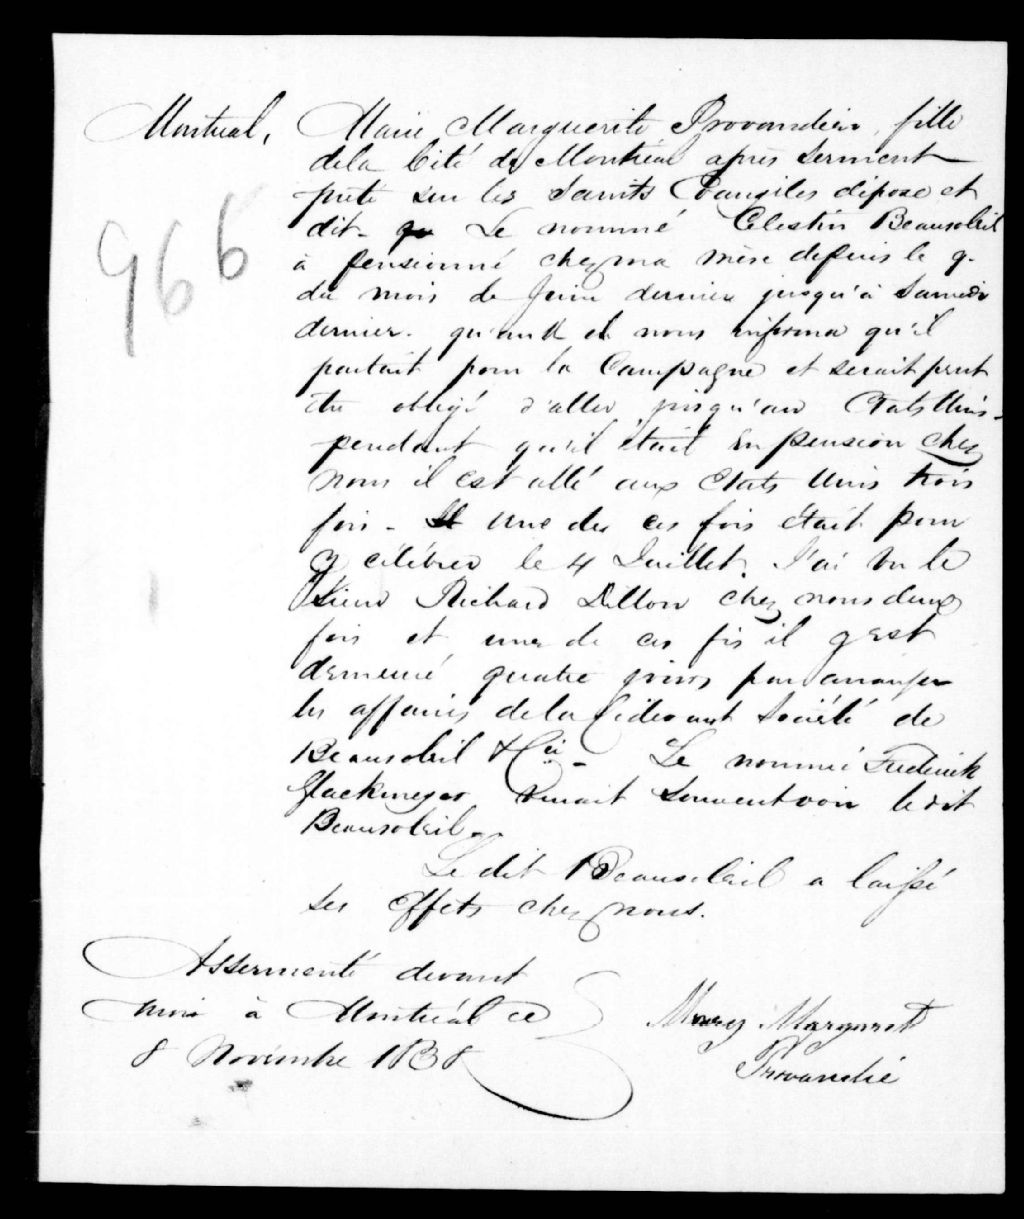 Montreal, Marie Marguerite Provandier, fille
de la Cité de Montréal après serment
prêté sur les Saints Evangiles dépose et
dit - Le nommé Célestin Beausoleil
à pensionné chez ma mère depuis le 9.
966
du mois de Juin dernier jusqu'à Samedi
dernier. qu'and il nous informa qu'il
partait pour la Campagne et serait peut
être obligé d'aller jusqu'au Etats Unis -
pendant qu'il était en pension chez
nous il est allé aux Etats Unis trois
fois - Une des ces fois était pour
y célébrer le 4 Juillet. J'ai vu le
Sieur Richard Dillon chez nous deux
fois et une de ces fois il y est
demeuré quatre jours pour arranger
les affaires de la Cidevant Société de
Beausoleil & Cie - Le nommé Frederick
Glackmeyer venait souvent voir le dit
Beausoleil -
Le dit Beausoleil a laissé
ses effets chez nous.
Assermenté devant
moi à Montréal ce
8 Novembre 1838
Mary Margaret
Provandié